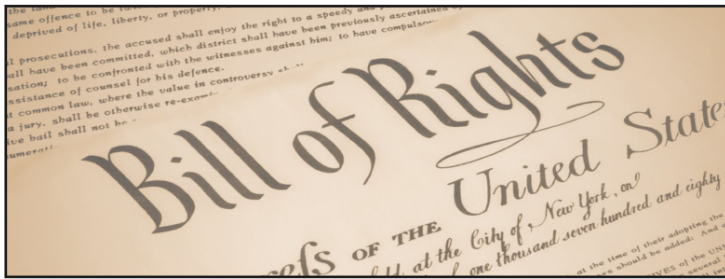 same offence to be
deprived of life, liberty, or property,
prosecutions, the accused shall enjoy the right to a speedy and
all have been committed, which district shall have been previously ascertained
sation; to be confronted with the witnesses against him; to have compulso
ssistance of counsel for his defence.
common law, where the value in controversy
a jury, shall be otherwise re-exam
ive bail shall not be
umerati
Bill of Rights
efs OF THE United State
at the City of New York, on
one thousand seven hundred and eighty
at the time of their adopting the
should be added: And
OF THE UNI
several